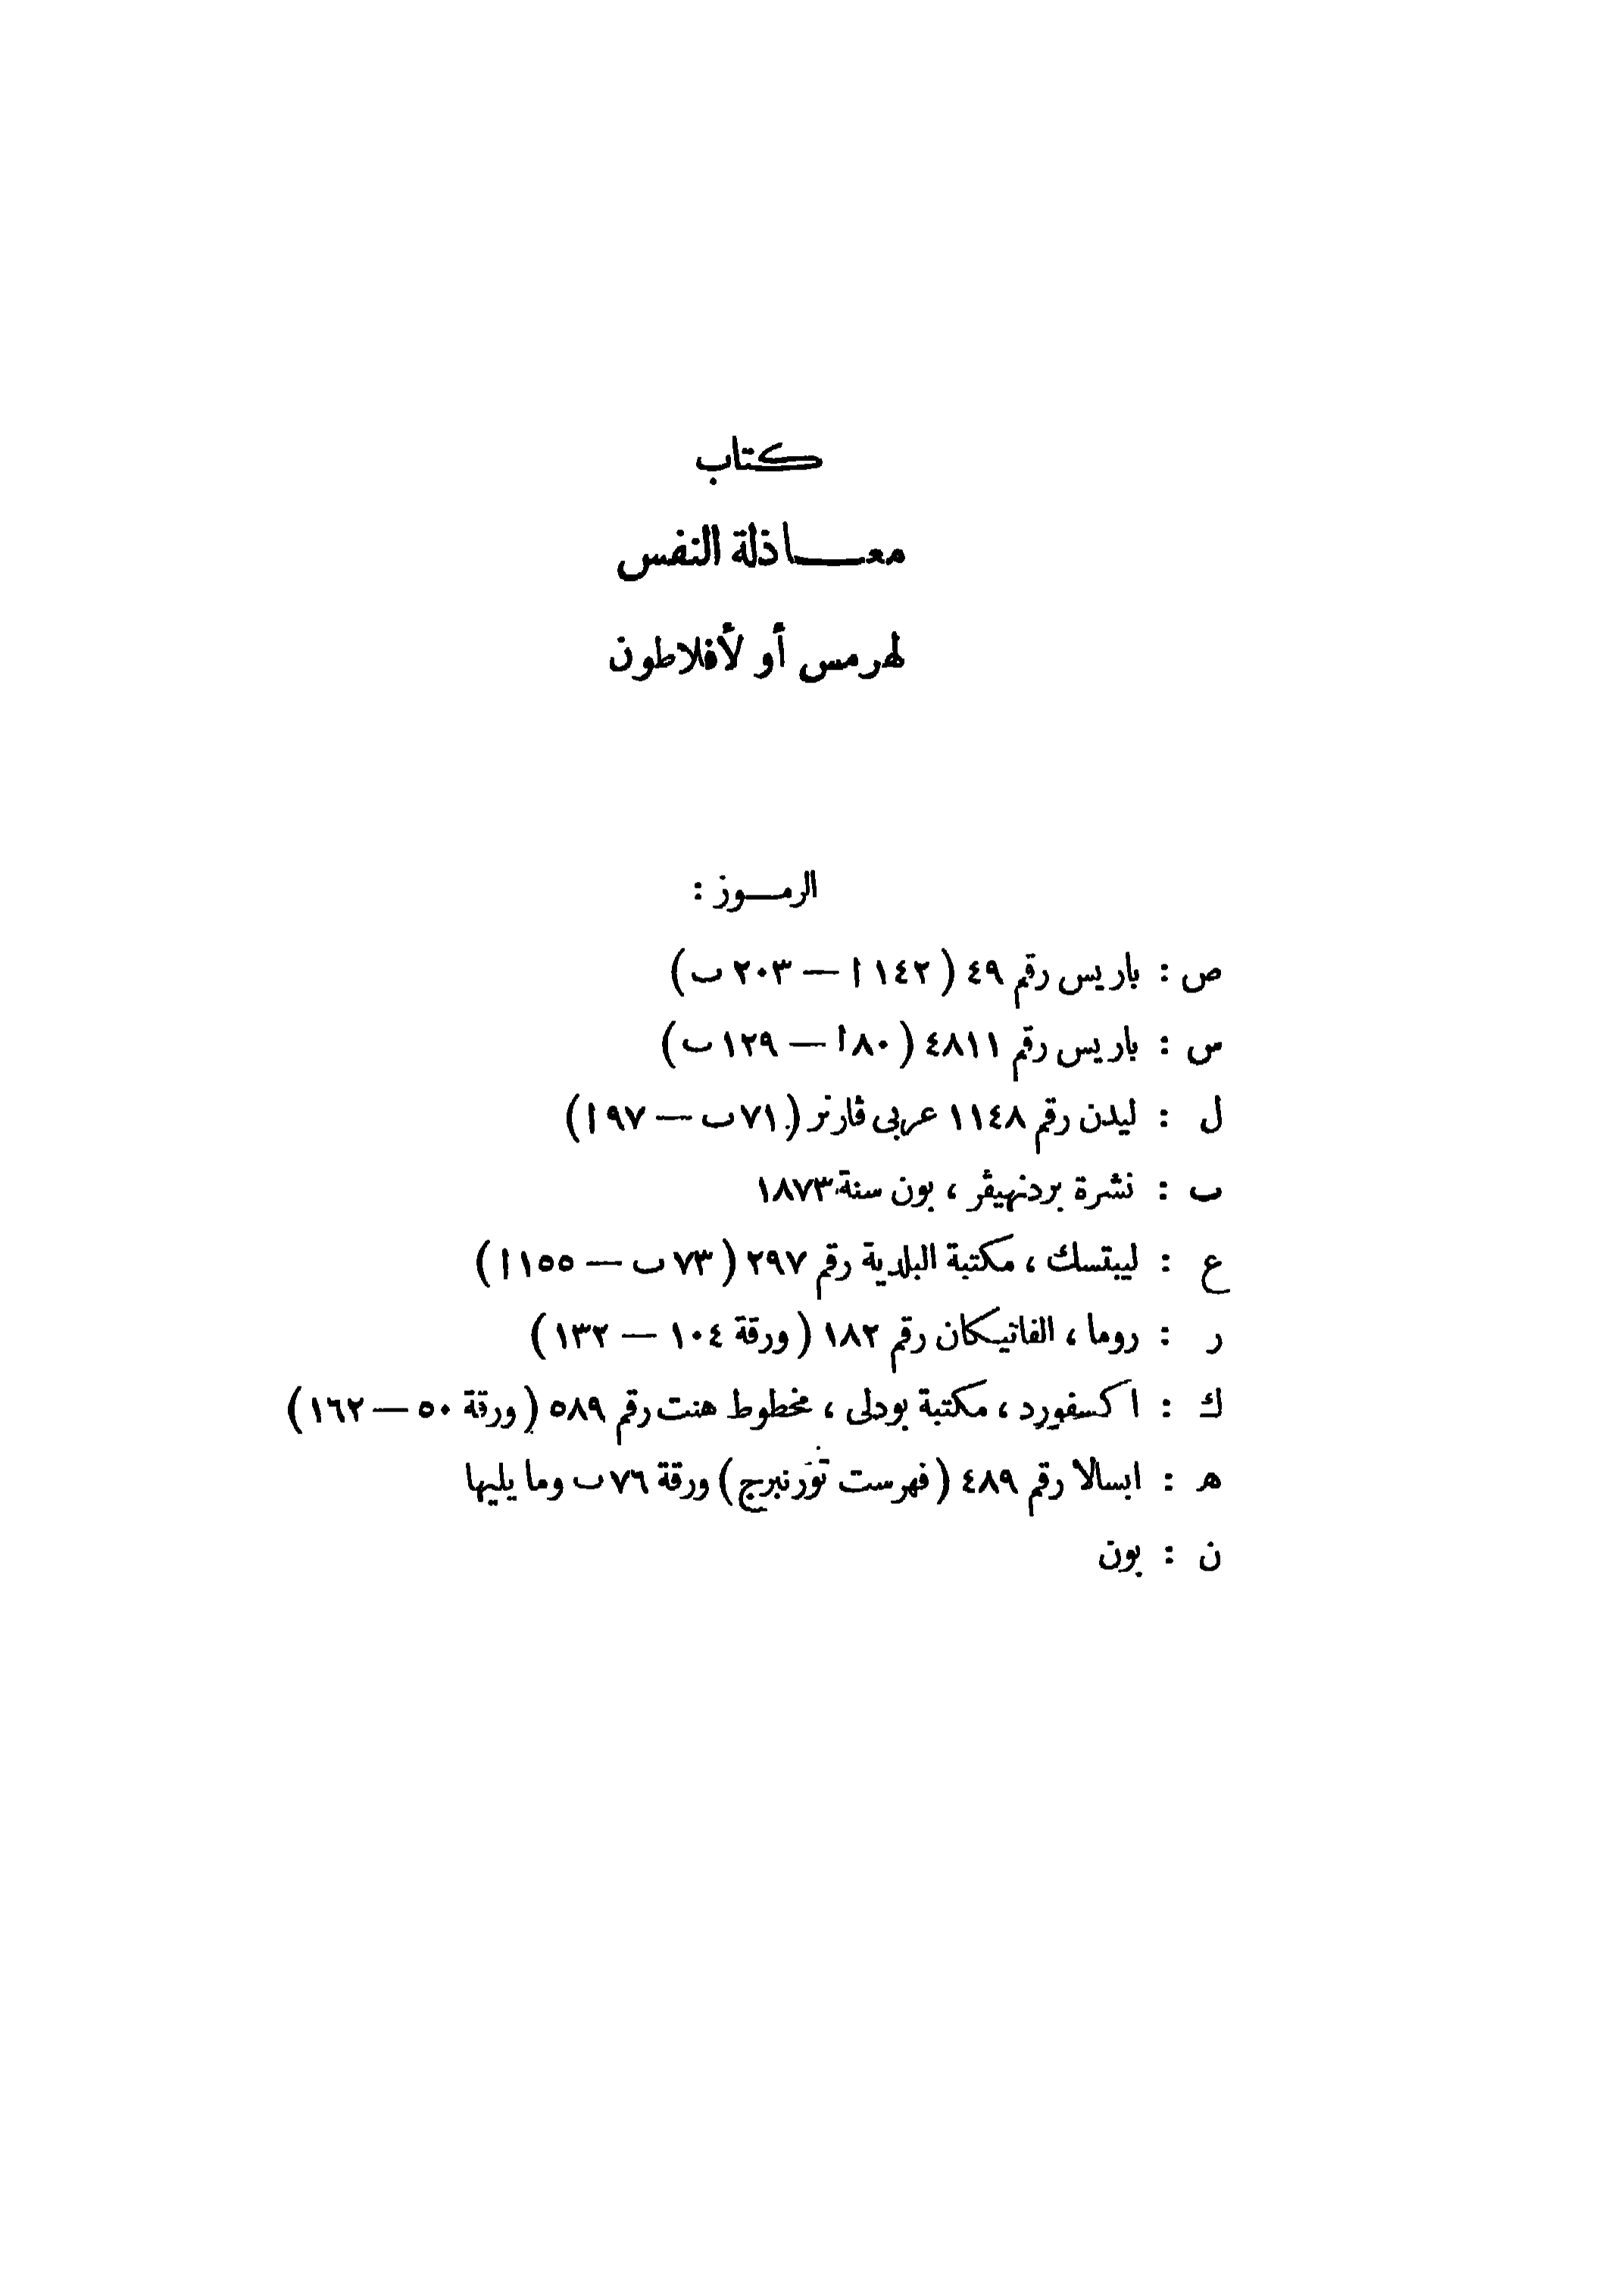 كتاب
معاذلة النفس
لهرمس أو لأفلاطون
الرموز :
ص : باريس رقم ٤٩ (١٤٢ ا — ٢٠٣ ب)
س : باريس رقم ٤٨١١ (٨٠ ا — ١٢٩ ب)
ل : ليدن رقم ١١٤٨ عربى ڤارنر (٧١ ب — ٩٧ ا)
ب : نشرة بردنهيڤر ، بون سنة ١٨٧٣
ع : ليبتسك ، مكتبة البلدية رقم ٢٩٧ (٧٣ ب — ١٥٥ ا)
ر : روما ، الفاتيكان رقم ١٨٢ (ورقة ١٠٤ — ١٣٢)
ك : اكسفورد ، مكتبة بودلى ، مخطوط هنت رقم ٥٨٩ (ورقة ٥٠ — ١٦٢)
ه : ابسالا رقم ٤٨٩ (فهرست تورنبرج) ورقة ٧٦ ب وما يليها
ن : بون